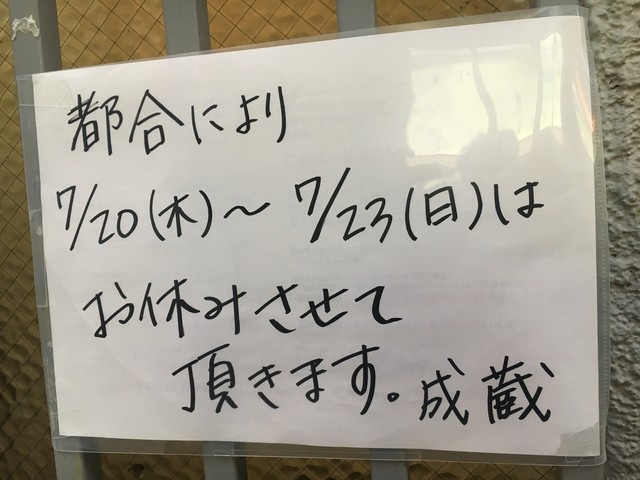 都合により
7/20(木)～7/23(日)は
お休みさせて
頂きます。成蔵